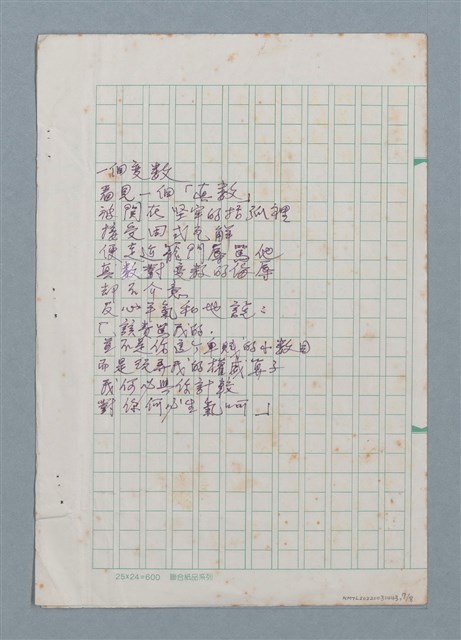 一個變數
看見一個「真數」
被關在堅牢的括弧裡
接受因式先解
便走近籠門辱罵他
真數對變數的侮辱
却不介意
反心平氣和地說：
「該責罵我的，
並不是你這个卑賤的小數目
而是玩弄我的權威算子
我何必與你計較
對你何必生氣呵」
25×24=600